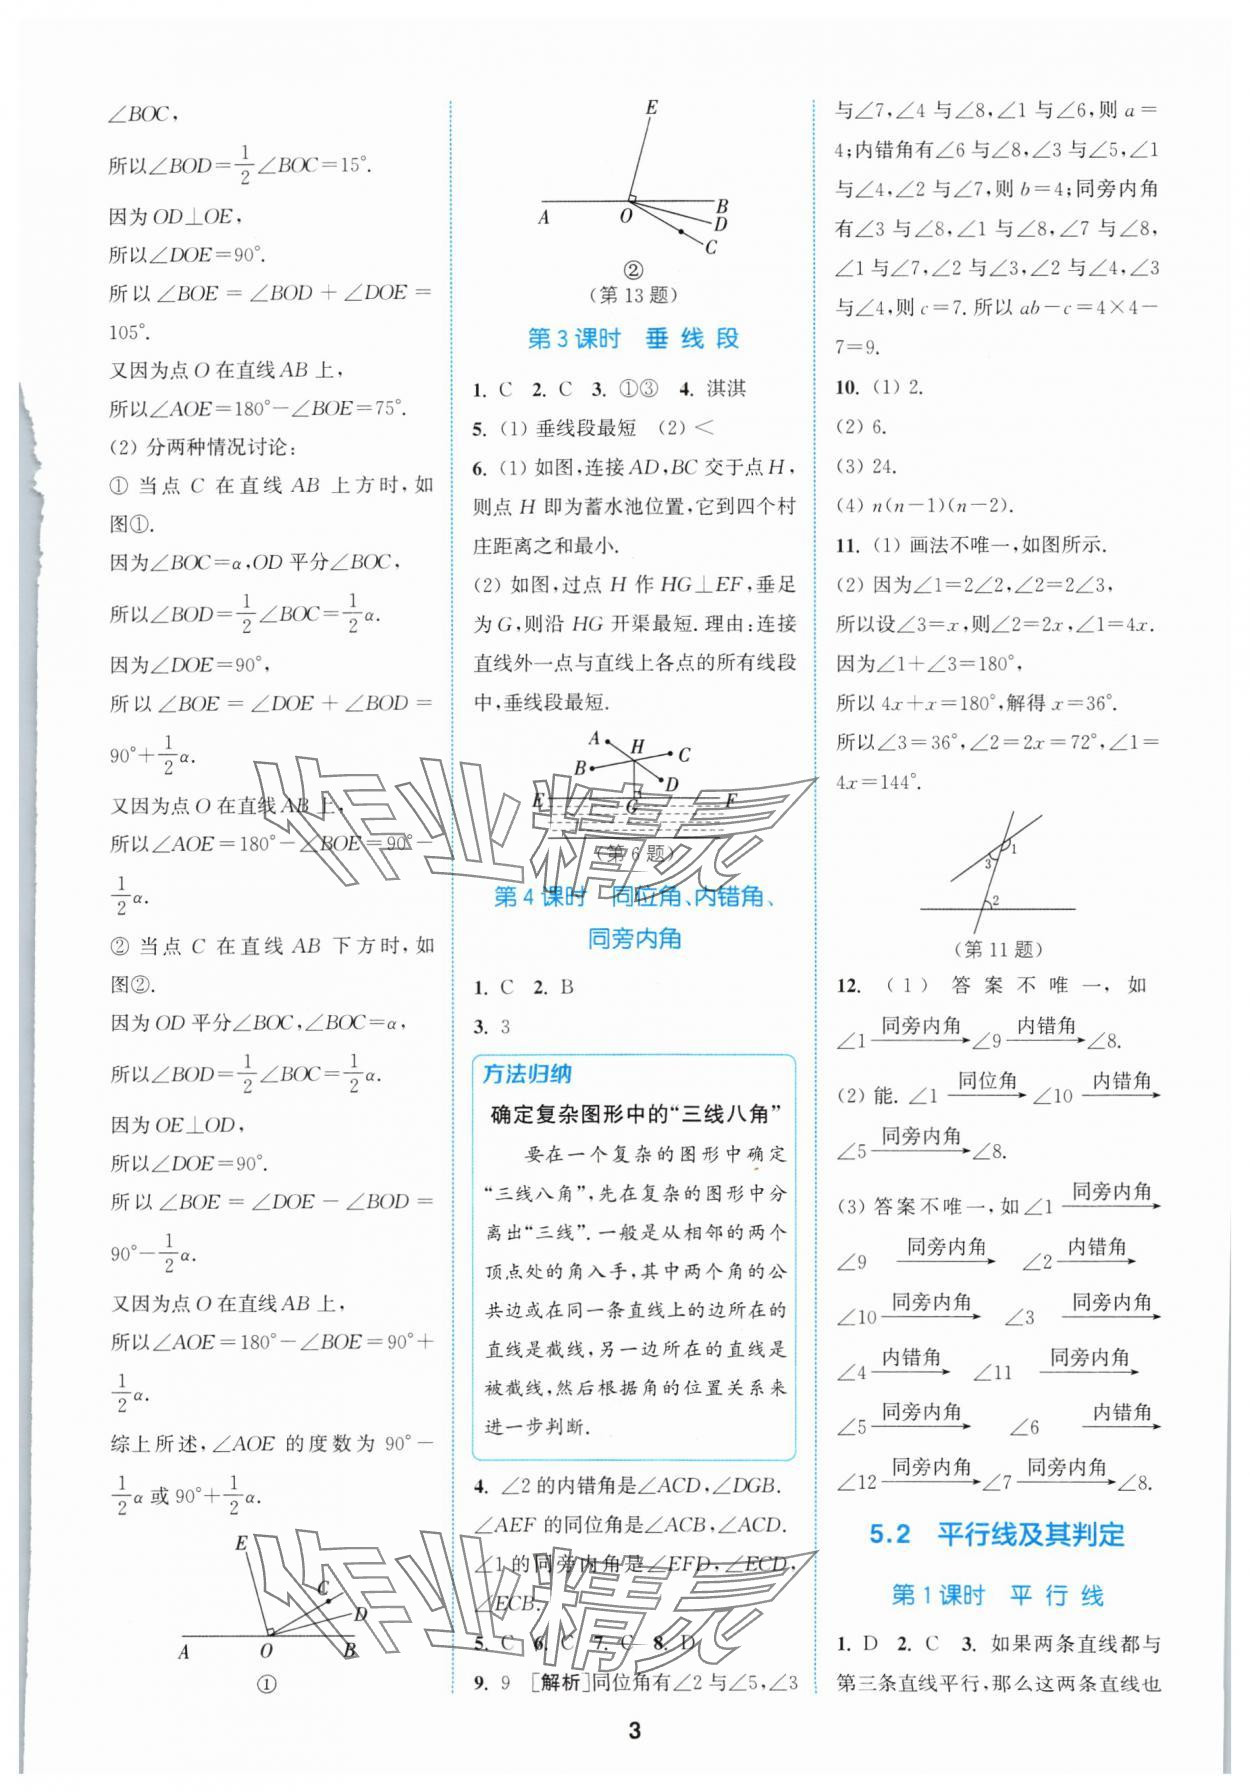 ∠BOC,
所以∠BOD=1/2∠BOC=15°.
因为OD⊥OE,
所以∠DOE=90°.
所以∠BOE=∠BOD+∠DOE=
105°.
又因为点O在直线AB上,
所以∠AOE=180°-∠BOE=75°.
(2) 分两种情况讨论:
① 当点C在直线AB上方时,如
图①.
因为∠BOC=α,OD平分∠BOC,
所以∠BOD=1/2∠BOC=1/2α.
因为∠DOE=90°,
所以∠BOE=∠DOE+∠BOD=
90°+1/2α.
又因为点O在直线AB上,
所以∠AOE=180°-∠BOE=90°-
1/2α.
② 当点C在直线AB下方时,如
图②.
因为OD平分∠BOC,∠BOC=α,
所以∠BOD=1/2∠BOC=1/2α.
因为OE⊥OD,
所以∠DOE=90°.
所以∠BOE=∠DOE-∠BOD=
90°-1/2α.
又因为点O在直线AB上,
所以∠AOE=180°-∠BOE=90°+
1/2α.
综上所述,∠AOE的度数为90°-
1/2α或90°+1/2α.
E
C
D
A O B
①
E
A O B
D
C
②
(第13题)
第3课时 垂线段
1. C 2. C 3. ①③ 4. 淇淇
5. (1) 垂线段最短 (2) <
6. (1) 如图,连接AD,BC交于点H,
则点H即为蓄水池位置,它到四个村
庄距离之和最小.
(2) 如图,过点H作HG⊥EF,垂足
为G,则沿HG开渠最短.理由:连接
直线外一点与直线上各点的所有线段
中,垂线段最短.
A H C
B D
E G F
(第6题)
第4课时 同位角、内错角、
同旁内角
1. C 2. B
3. 3
方法归纳
确定复杂图形中的“三线八角”
要在一个复杂的图形中确定
“三线八角”,先在复杂的图形中分
离出“三线”.一般是从相邻的两个
顶点处的角入手,其中两个角的公
共边或在同一条直线上的边所在的
直线是截线,另一边所在的直线是
被截线,然后根据角的位置关系来
进一步判断.
4. ∠2的内错角是∠ACD,∠DGB.
∠AEF的同位角是∠ACB,∠ACD.
∠1的同旁内角是∠EFD,∠ECD,
∠ECB.
5. C 6. C 7. C 8. D
9. 9 [解析]同位角有∠2与∠5,∠3
与∠7,∠4与∠8,∠1与∠6,则a=
4;内错角有∠6与∠8,∠3与∠5,∠1
与∠4,∠2与∠7,则b=4;同旁内角
有∠3与∠8,∠1与∠8,∠7与∠8,
∠1与∠7,∠2与∠3,∠2与∠4,∠3
与∠4,则c=7.所以ab-c=4×4-
7=9.
10. (1) 2.
(2) 6.
(3) 24.
(4) n(n-1)(n-2).
11. (1) 画法不唯一,如图所示.
(2) 因为∠1=2∠2,∠2=2∠3,
所以设∠3=x,则∠2=2x,∠1=4x.
因为∠1+∠3=180°,
所以4x+x=180°,解得x=36°.
所以∠3=36°,∠2=2x=72°,∠1=
4x=144°.
1
3
2
(第11题)
12. (1) 答案不唯一,如
∠1 同旁内角→ ∠9 内错角→ ∠8.
(2) 能. ∠1 同位角→ ∠10 内错角→
∠5 同旁内角→ ∠8.
(3) 答案不唯一,如∠1 同旁内角→
∠9 同旁内角→ ∠2 内错角→
∠10 同旁内角→ ∠3 同旁内角→
∠4 内错角→ ∠11 同旁内角→
∠5 同旁内角→ ∠6 内错角→
∠12 同旁内角→ ∠7 同旁内角→ ∠8.
5.2 平行线及其判定
第1课时 平行线
1. D 2. C 3. 如果两条直线都与
第三条直线平行,那么这两条直线也
3
作业精灵
作业精灵